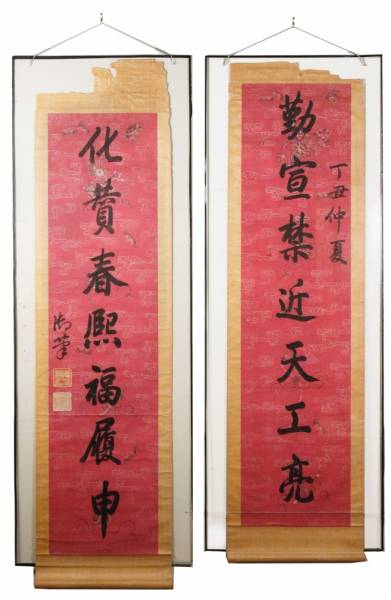 丁丑仲夏
勤宣禁近天工亮
化贊春熙福履申
御筆